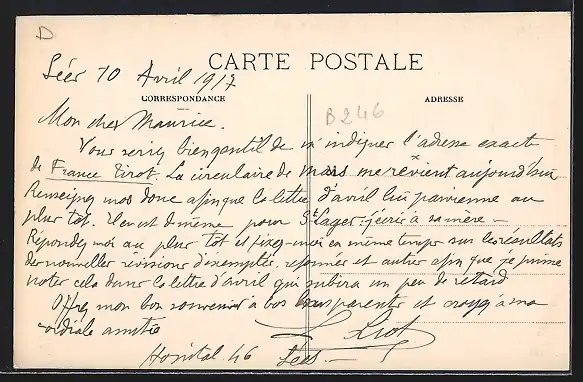 D
CARTE POSTALE
Sées 10 Avril 1917
CORRESPONDANCE
ADRESSE
B246
Mon cher Maurice.
Vous seriez bien gentil de m'indiquer l'adresse exacte
de France Tirot. La circulaire de mars me revient aujourd'hui
Renseignez nos donc afin que la lettre d'avril lui parvienne au
plus tôt. Il en est de même pour St Lager : j'écris à sa mère —
Répondez moi au plus tôt et fixez-moi en même temps sur les résultats
des nouvelles révisions d'exemptés, réformés et autres afin que je puisse
noter cela dans la lettre d'avril qui subira un peu de retard
Offrez mon bon souvenir à vos bons parents et croyez à ma
cordiale amitié
Hopital 46 Sées —